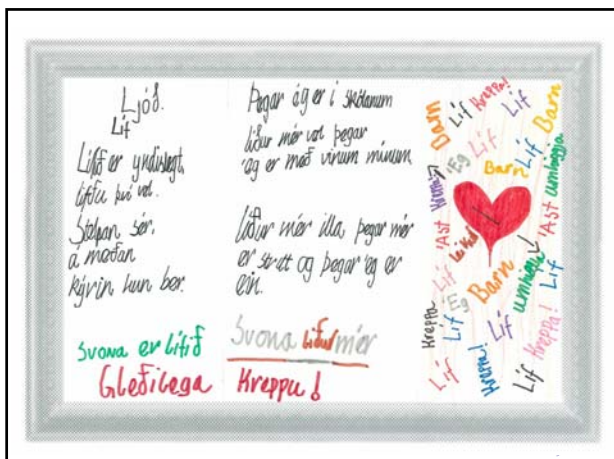 Ljóð.
Líf
Lífið er yndislegt,
lifðu því vel.
Stelpan sér,
á meðan
kýrin hun ber.
Svona er lífið
Gleðilega
Þegar ég er í skólanum
líður mér vel þegar
ég er með vinum mínum
líður mér illa, þegar mér
er strítt og þegar ég er
ein.
Svona líður mér
Kreppu!
Barn
Líf
Kreppa!
Líf
Barn
Kreppa
Ég
Líf
Barn
Líf
umhyggja
Ást
Ást
Líf
Ég
Barn
umhyggja
Líf
Kreppa
Líf
Líf
Kreppa!
Líf
Kreppa!
Líf